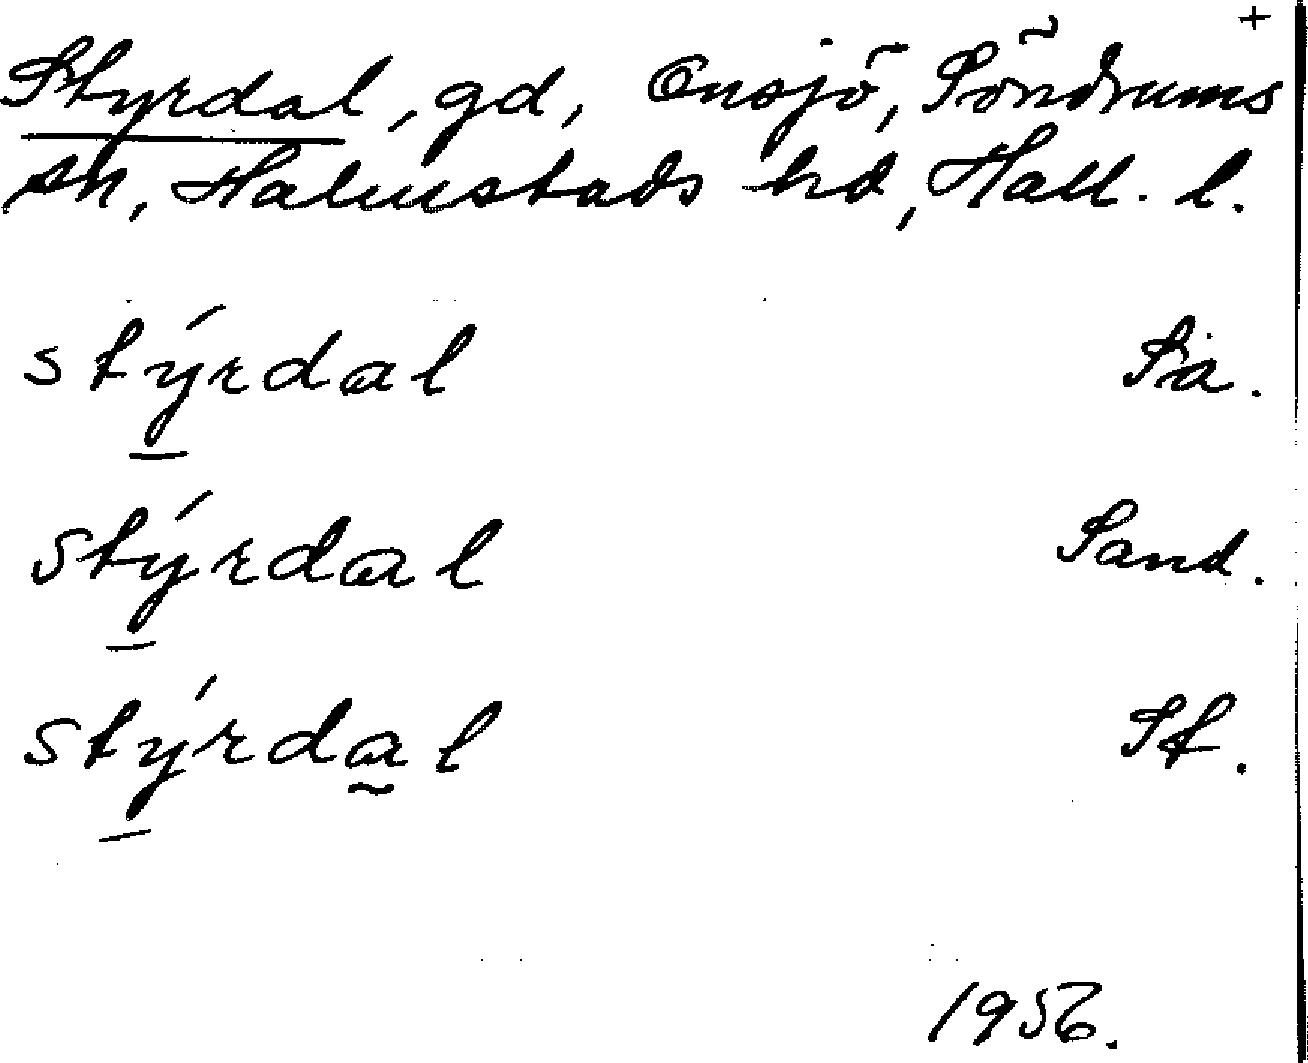 +
Styrdal, gd, Onsjö, Söndrums
sn, Halmstads hd, Hall. l.
stýrdal Sä.
stýrdal Sand.
stýrdal Sf.
1956.